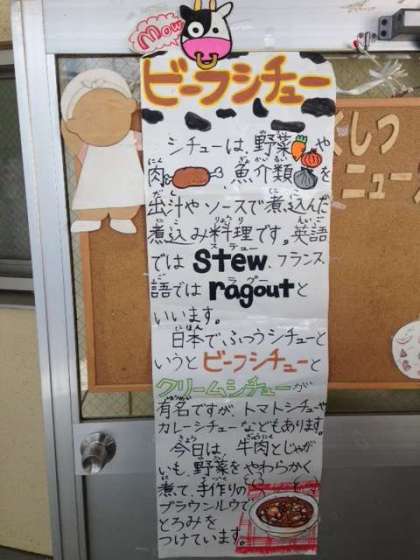 Mow
ビーフシチュー
シチューは、野菜や
肉、魚介類を
出汁やソースで煮込んだ
煮込み料理です。英語
では stew、フランス
語では ragoutと
いいます。
日本で、ふつうシチューと
いうとビーフシチューと
クリームシチューが
有名ですが、トマトシチューや
カレーシチューなどもあります。
今日は、牛肉とじゃが
いも、野菜をやわらかく
煮て、手作りの
ブラウンルウで
とろみを
つけています。